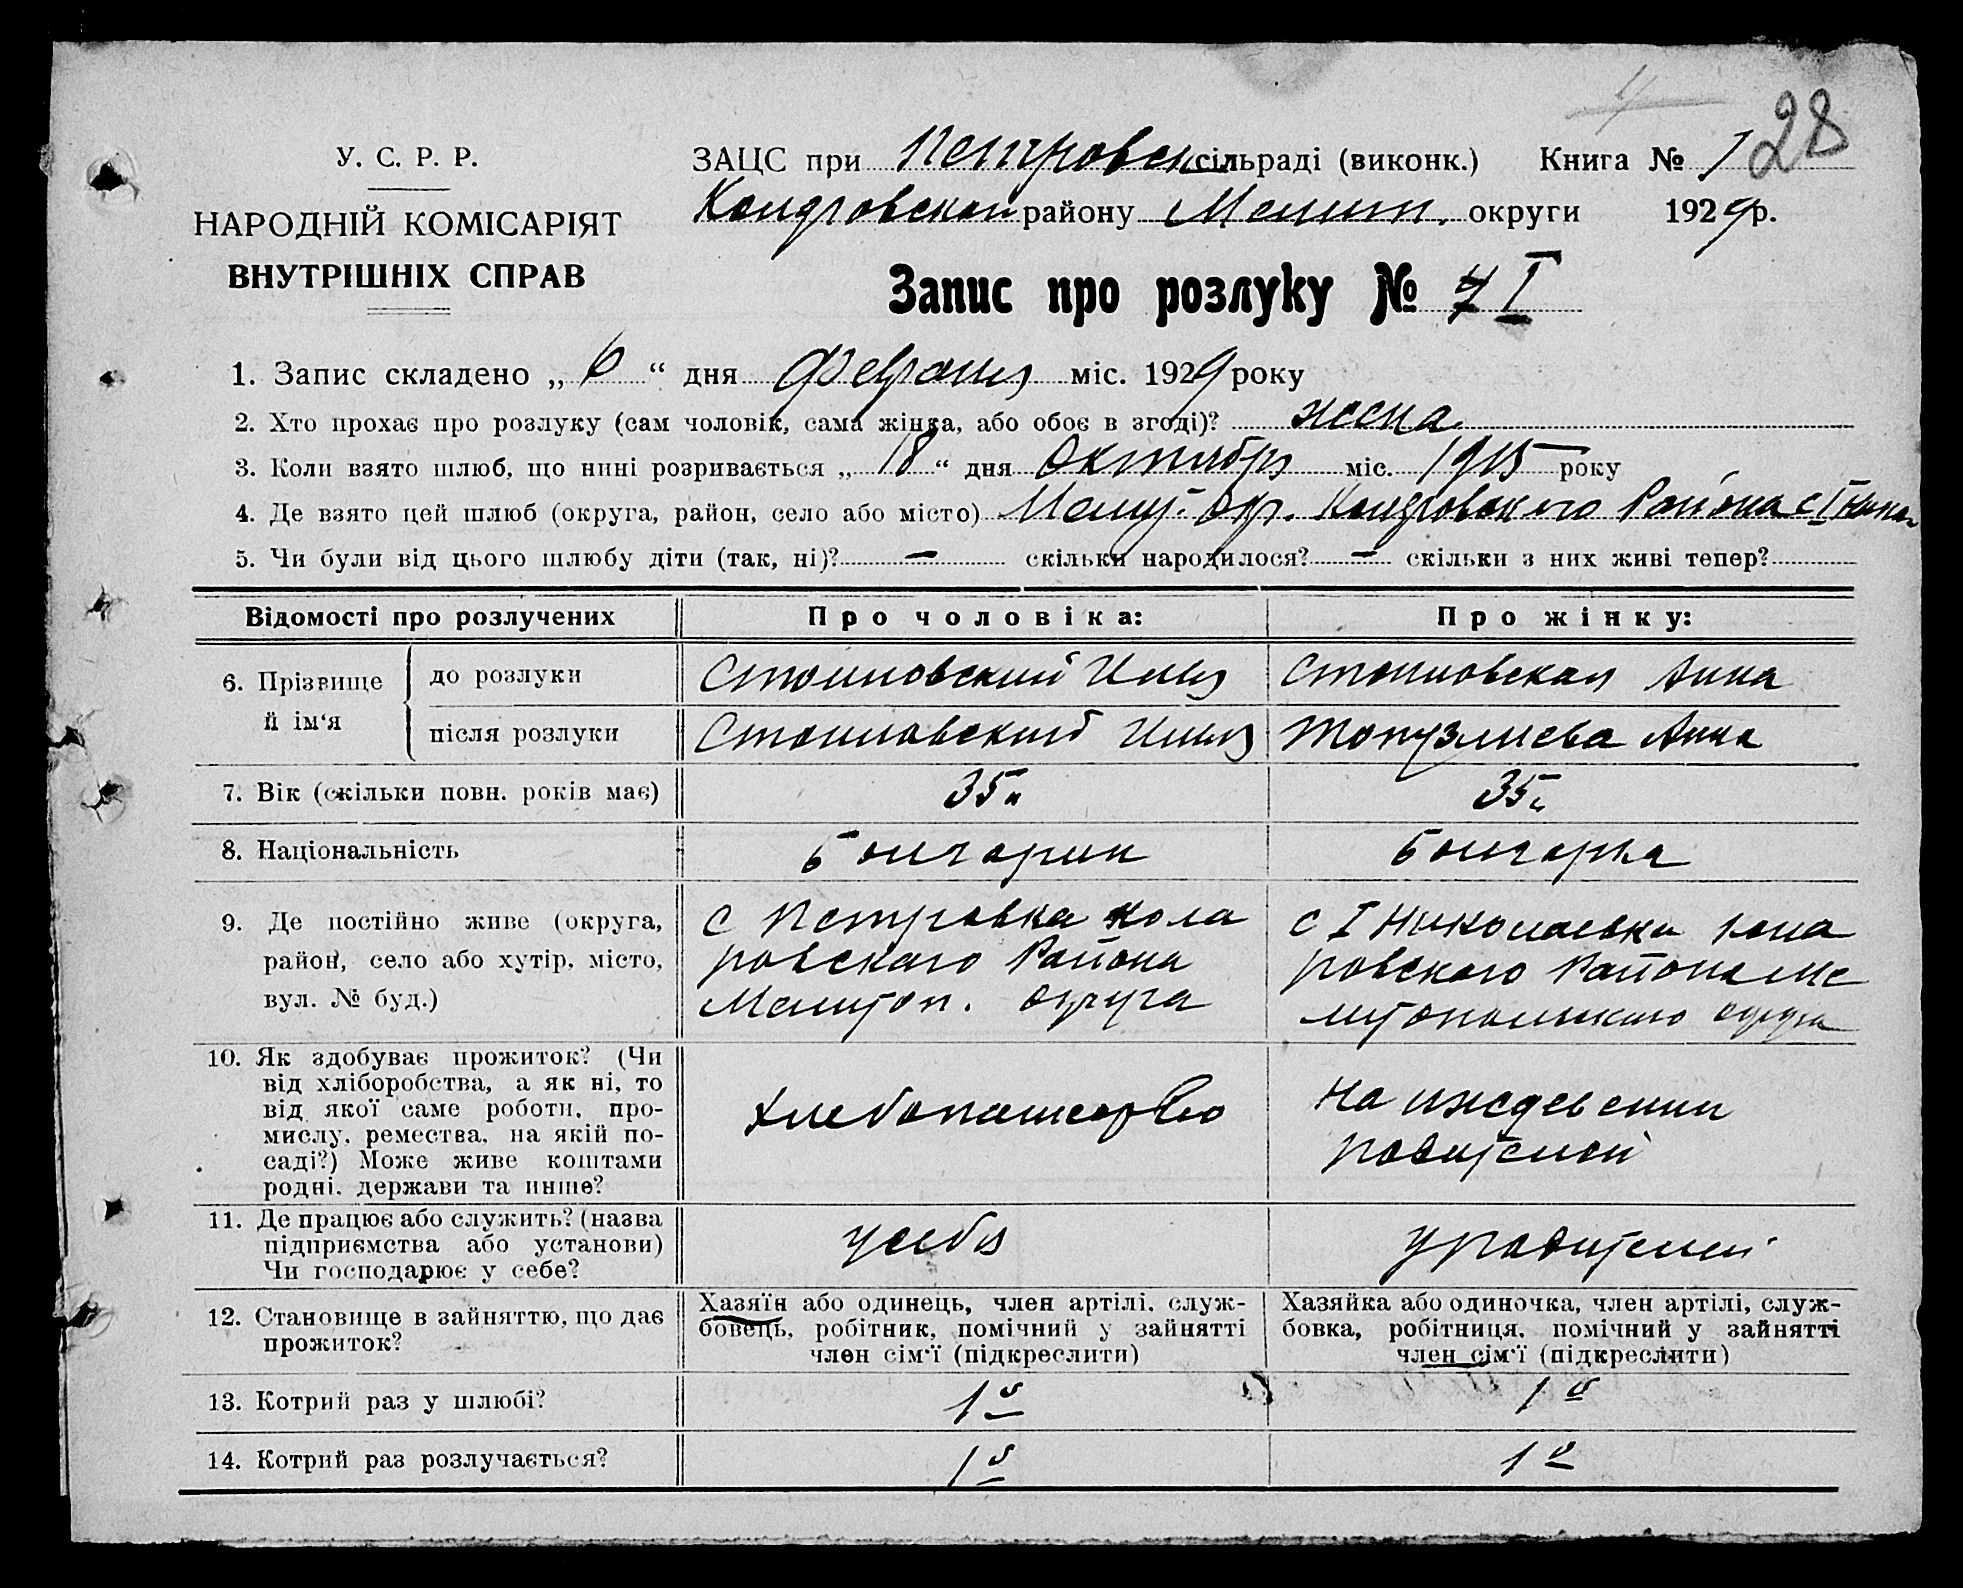 28
У. С. Р. Р.
НАРОДНІЙ КОМІСАРІЯТ
ВНУТРІШНІХ СПРАВ
ЗАЦС при Петровск сільраді (виконк.) Книга № 1
району Мелит. округи 1929 р.
Запис про розлуку № I
1. Запис складено „ 6 “ дня Февраля міс. 1929 року
2. Хто прохає про розлуку (сам чоловік, сама жінка, або обоє в згоді)? жена
3. Коли взято шлюб, що нині розривається „ 18 “ дня Октября міс. 1915 року
4. Де взято цей шлюб (округа, район, село або місто) Мелит. окр. Района с I Никол
5. Чи були від цього шлюбу діти (так, ні)? — скільки народилося? — скільки з них живі тепер?
Відомості про розлучених Про чоловіка: Про жінку:
6. Прізвище й ім‘я
до розлуки Стоиловский Илья Стоиловская Анна
після розлуки Стоиловский Илья Топузлиева Анна
7. Вік (скільки повн. років має) 35 л 35 л
8. Національність болгарин болгарка
9. Де постійно живе (округа, район, село або хутір, місто, вул. № буд.)
с Петровка Кола
ровскаго Района
Мелитоп. округа
с I Николаевка Кола
ровскаго Района Ме
литопольскаго округа
10. Як здобуває прожиток? (Чи
від хліборобства, а як ні, то
від якої саме роботи, про-
мислу, ремества, на якій по-
саді?) Може живе коштами
родні, держави та инше?
хлебопашество
на иждевении
родителей
11. Де працює або служить? (назва
підприємства або установи)
Чи господарює у себе?
у себя
у родителей
12. Становище в зайняттю, що дає
прожиток?
Хазяїн або одинець, член артілі, служ-
бовець, робітник, помічний у зайнятті
член сім‘ї (підкреслити)
Хазяйка або одиночка, член артілі, служ-
бовка, робітниця, помічний у зайнятті
член сім‘ї (підкреслити)
13. Котрий раз у шлюбі? 1й 1й
14. Котрий раз розлучається? 1й 1й